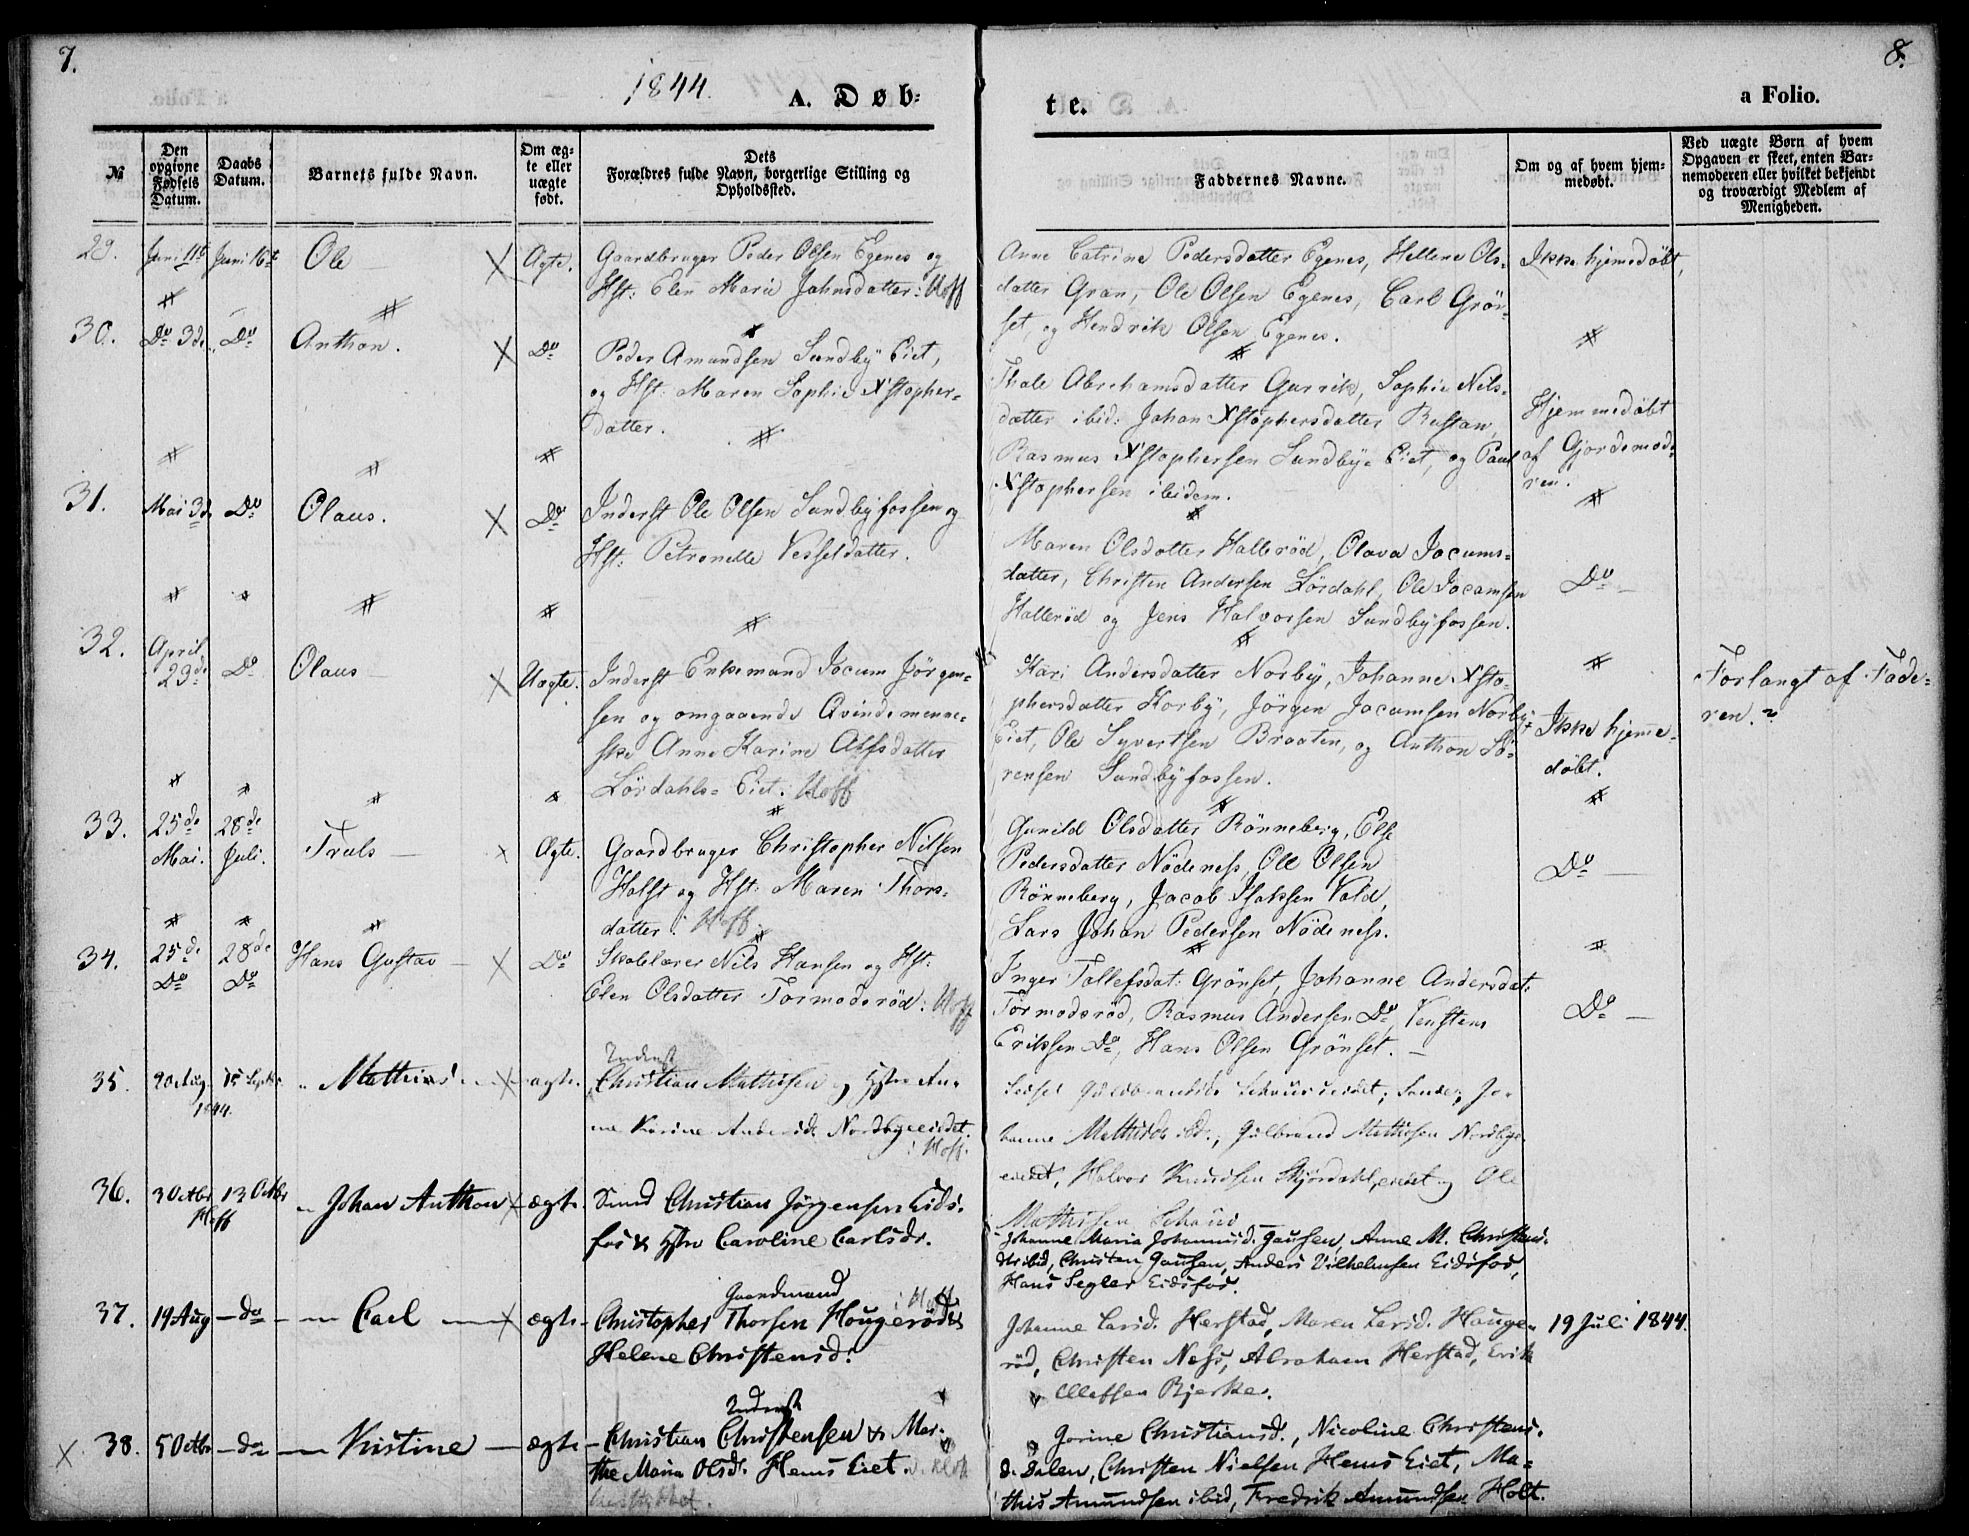 7.
8.
1844.
A. Døb-
te.
a Folio.
№
Den opgivne Fødsels Datum.
Daabs Datum.
Barnets fulde Navn.
Om ægte eller uægte født.
Dets Forældres fulde Navn, borgerlige Stilling og Opholdssted.
Faddernes Navne.
Om og af hvem hjemmedøbt.
Ved uægte Børn af hvem Opgaven er skeet, enten Barnemoderen eller hvilket bekjendt og troværdigt Medlem af Menigheden.
29. Juni 11te Juni 16de Ole X Ægte.
Gaardbruger Peder Olsen Egenes og
Hst: Elen Marie Johnsdatter: Hoff
Anne Catrine Pedersdatter Egenes, Hellene Ols-
datter Gran, Ole Olsen Egenes, Carl Grön-
set, og Hendrik Olsen Egenes.
Ikke hjemedöbt,
30. Do 3de Do Anthon. X Do
Peder Amundsen Sundby Eiet,
og Hst: Maren Sophie Xstopher-
datter.
Thale Abrahamsdatter Gurrik, Sophie Nils-
datter ibid: Johan Xstophersdatter Rustan,
Rasmus Xstophersen Sundby Eiet, og Paul
Xstophersen ibidem.
Hjemmedöbt
af Gjordemode-
ren.
31. Mai 3de Do Olaus. X Do
Inderst Ole Olsen Sundbyfossen og
Hst: Petronelle Vesseldatter.
Maren Olsdatter Halleröd, Olava Jocums-
datter, Christen Andersen Lördahl, Ole Jocumsen
Halleröd og Jens Halvorsen Sundbyfossen.
Do
32. April 29de Do Olaus X Uægte.
Inderst Enkemand Jocum Jörgen-
sen og omgaaende Qvindemenne-
ske Anne Karine Alfsdatter
Lördahls-Eiet. Hoff
Kari Andersdatter Norby, Johanne Xsto-
phersdatter Korby, Jörgen Jocumsen Norby
Eiet, Ole Syvertsen Braaten, og Anthon Sö-
rensen Sundbyfossen.
Ikke hjeme-
döbt.
Forlangt af Fade-
ren.
33. 25de Mai. 28de Juli. Truls X Ægte.
Gaardbruger Christopher Nilsen
Holst og Hst: Maren Thors-
datter: Hoff.
Gunild Olsdatter Rönneberg, Else
Pedersdatter Nödeness, Ole Olsen
Rönneberg, Jacob Isaksen Vold,
Lars Johan Pedersen Nödeness.
Do
34. 25de Do 28de Do Hans Gustav X Do
Skolelærer Nils Hansen og Hst:
Elen Olsdatter Tormodsröd: Hoff
Inger Tollefsdat: Grönset, Johanne Andersdat:
Tormodsröd, Rasmus Andersen Do,
Eriksen Do, Hans Olsen Grönset.
Do
35. 20 Aug. 15 Septbr 1844. Mathias X ægte.
Inderst
Christian Mathisen og Hstru An-
ne Karine Andersd. Nordbyeeiedet.
i Hoff.
hanne Mathisd. ibd., Gulbrand Mathisen Nordbye-
eiedet, Halvor Knudsen Skjordahl, eiedet og Ole
Mathisen
36. 3 Octbr 13 Octbr Hoff Johan Anthon X ægte
Smed Christian Jörgensen Eids-
fos & Hstru Caroline Carlsdr.
Johanne Maria Johannisd. Gausen, Anne M. Christens-
dtr ibid, Christen Gausen, Anders Vilhelmsen Eidsfos,
Hans Segler Eidsfos.
37. 19 Aug do Carl X ægte
Gaardmand i Hoff
Christopher Thorsen Hougeröd &
Helene Christensd.
Johanne Larsd. Herstad, Maren Larsd. Hauge-
röd, Christen Ness, Abraham Herstad, Erik
Olleffsen Bjerke.
19 Juli 1844.
X 38. 5 Octbr do Kristine ægte
Inderst
Christian Christensen & Mar-
the Maria Olsdr. Hems Eiet. i Hoff
Gorine Christiansd., Nicoline Christens-
d. Dalen, Christen Nielsen Hems Eiet, Ma-
this Amundsen ibid, Fredrik Amundsen Holt.